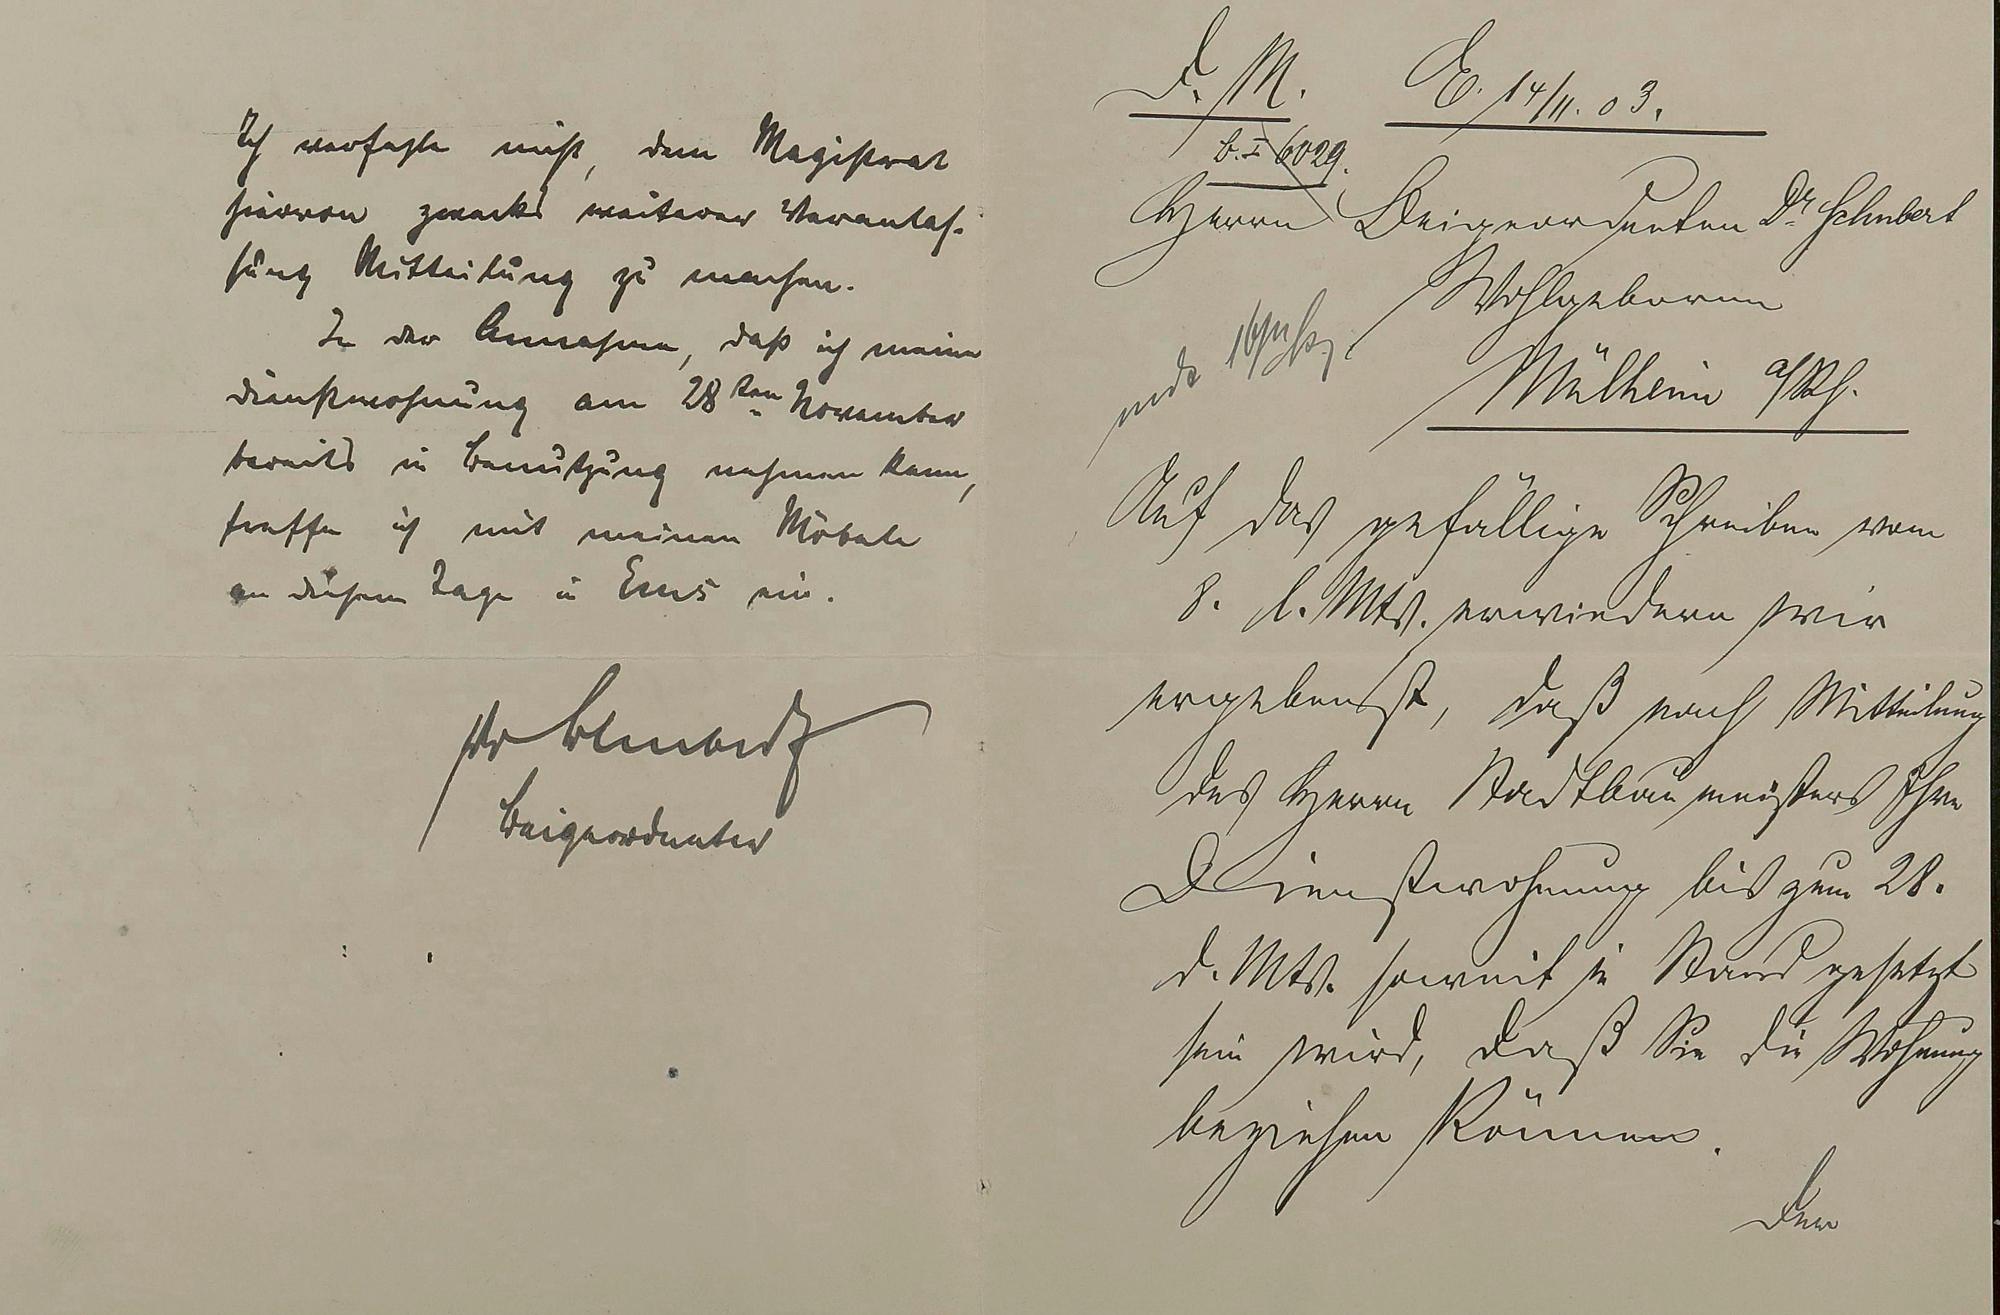 Ich verfehle nicht, dem Magistrat
hiervon zwecks weiterer Veranlas-
sung Mitteilung zu machen.
In der Annahme, daß ich meine
Dienstwohnung am 28ten November
bereits in Benutzung nehmen kann,
treffe ich mit meinen Möbeln
an diesem Tage in Ems ein.
Dr Schubert
Beigeordneter
D. M. E. 14/11. 03.
b. I 6029.
Herrn Beigeordneten Dr Schubert
Wohlgeboren
16/11
Mülheim a/Rh.
Auf das gefällige Schreiben vom
8. l. Mts. erwiedern wir
ergebenst, daß nach Mitteilung
des Herrn Stadtbaumeisters Ihre
Dienstwohnung bis zum 28.
d. Mts. soweit in Stand gesetzt
sein wird, daß Sie die Wohnung
beziehen können.
Der